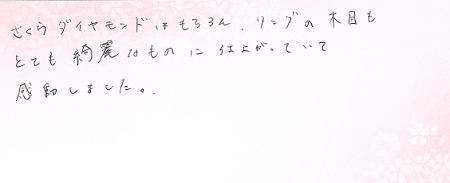 さくらダイヤモンドはもちろん、リングの木目も
とても綺麗なものに仕上がっていて
感動しました。